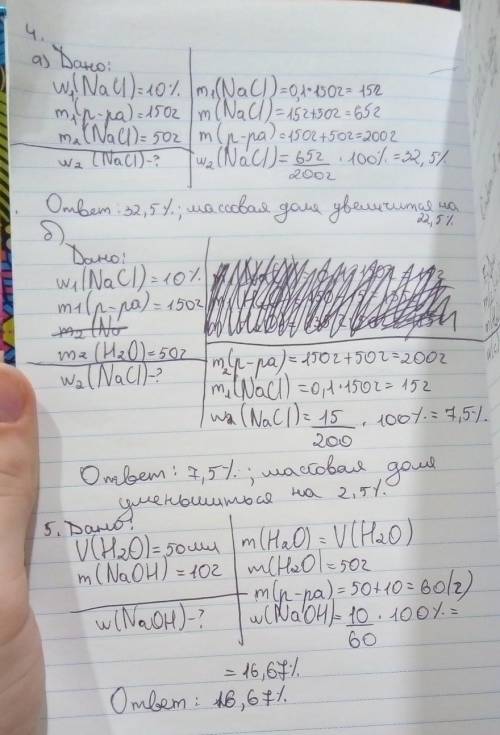 4.
а) Дано:
w₁(NaCl)=10%
m₁(р-ра)=150г
m₂(NaCl)=50г
w₂(NaCl)-?
m₁(NaCl)=0,1·150г=15г
m(NaCl)=15г+50г=65г
m(р-ра)=150г+50г=200г
w₂(NaCl)=65г/200г·100%=32,5%
Ответ: 32,5%; массовая доля увеличится на
22,5%
б)
Дано:
w₁(NaCl)=10%
m1(р-ра)=150г
m₂(Na
m₂(H₂O)=50г
w₂(NaCl)-?
m₂(р-ра)=150г+50г=200г
m₁(NaCl)=0,1·150г=15г
w₂(NaCl)=15/200·100%=7,5%
Ответ: 7,5%; массовая доля
уменьшиться на 2,5%
5. Дано:
V(H₂O)=50мл
m(NaOH)=10г
w(NaOH)-?
m(H₂O)=V(H₂O)
m(H₂O)=50г
m(р-ра)=50+10=60(г)
w(NaOH)=10/60·100%=
=16,67%
Ответ: 16,67%